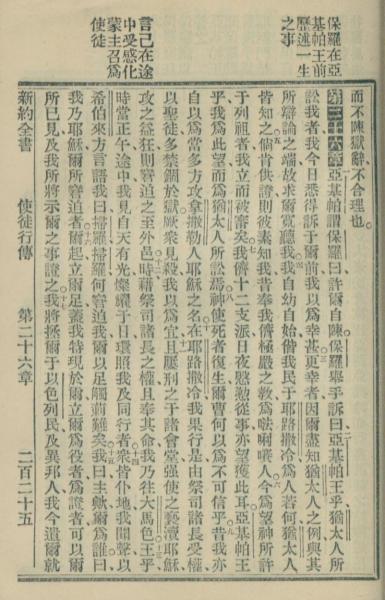 保羅在亞
基帕王前
歷述一生
之事
而不陳獄辭不合理也。
第二十六章亞基帕謂保羅曰許爾自陳保羅舉手訴曰亞基帕王乎猶太人所
訟我者我今日悉得訴于爾前我以爲幸甚更幸者因爾盡知猶太人之例與其
所辯論之端故求爾寬聽我我自幼自始偕我民于耶路撒冷爲人若何猶太人
皆知之倘肯供證則彼素知我昔奉我儕極嚴之教爲唎人今爲望神所許
于列祖者我立而被審矣我儕十二支派日夜慇懃從事亦望獲此耳亞基帕王
乎我爲此望而爲猶太人所訟焉神使死者復生爾曹何以爲不可信乎昔我亦
自以爲當多方攻拿撒勒人耶穌之名在耶路撒冷我果行是由祭司諸長受權
以聖徒多禁錮於獄厥衆見殺我以爲宜且屢刑之于諸會堂强使之褻瀆耶穌
言己在途
中受感化
蒙主召爲
使徒
攻之益狂則窘迫之至外邑時藉祭司諸長之權且奉其命我乃往大馬色王乎
時當正午途中我見自天有光燦耀于日環照我及同行者衆皆仆地我聞聲以
希伯來方言語我曰掃羅掃羅何窘迫我爾以足觸難矣我曰主歟爾爲誰曰
我乃耶穌爾所窘迫者爾起立爾足蓋我特現於爾立爾爲役者爲證者可以爾
所已見及我所將示爾之事證之我將拯爾于以色列民及異邦人我今遣爾就
新約全書 使徒行傳 第二十六章 二百二十五